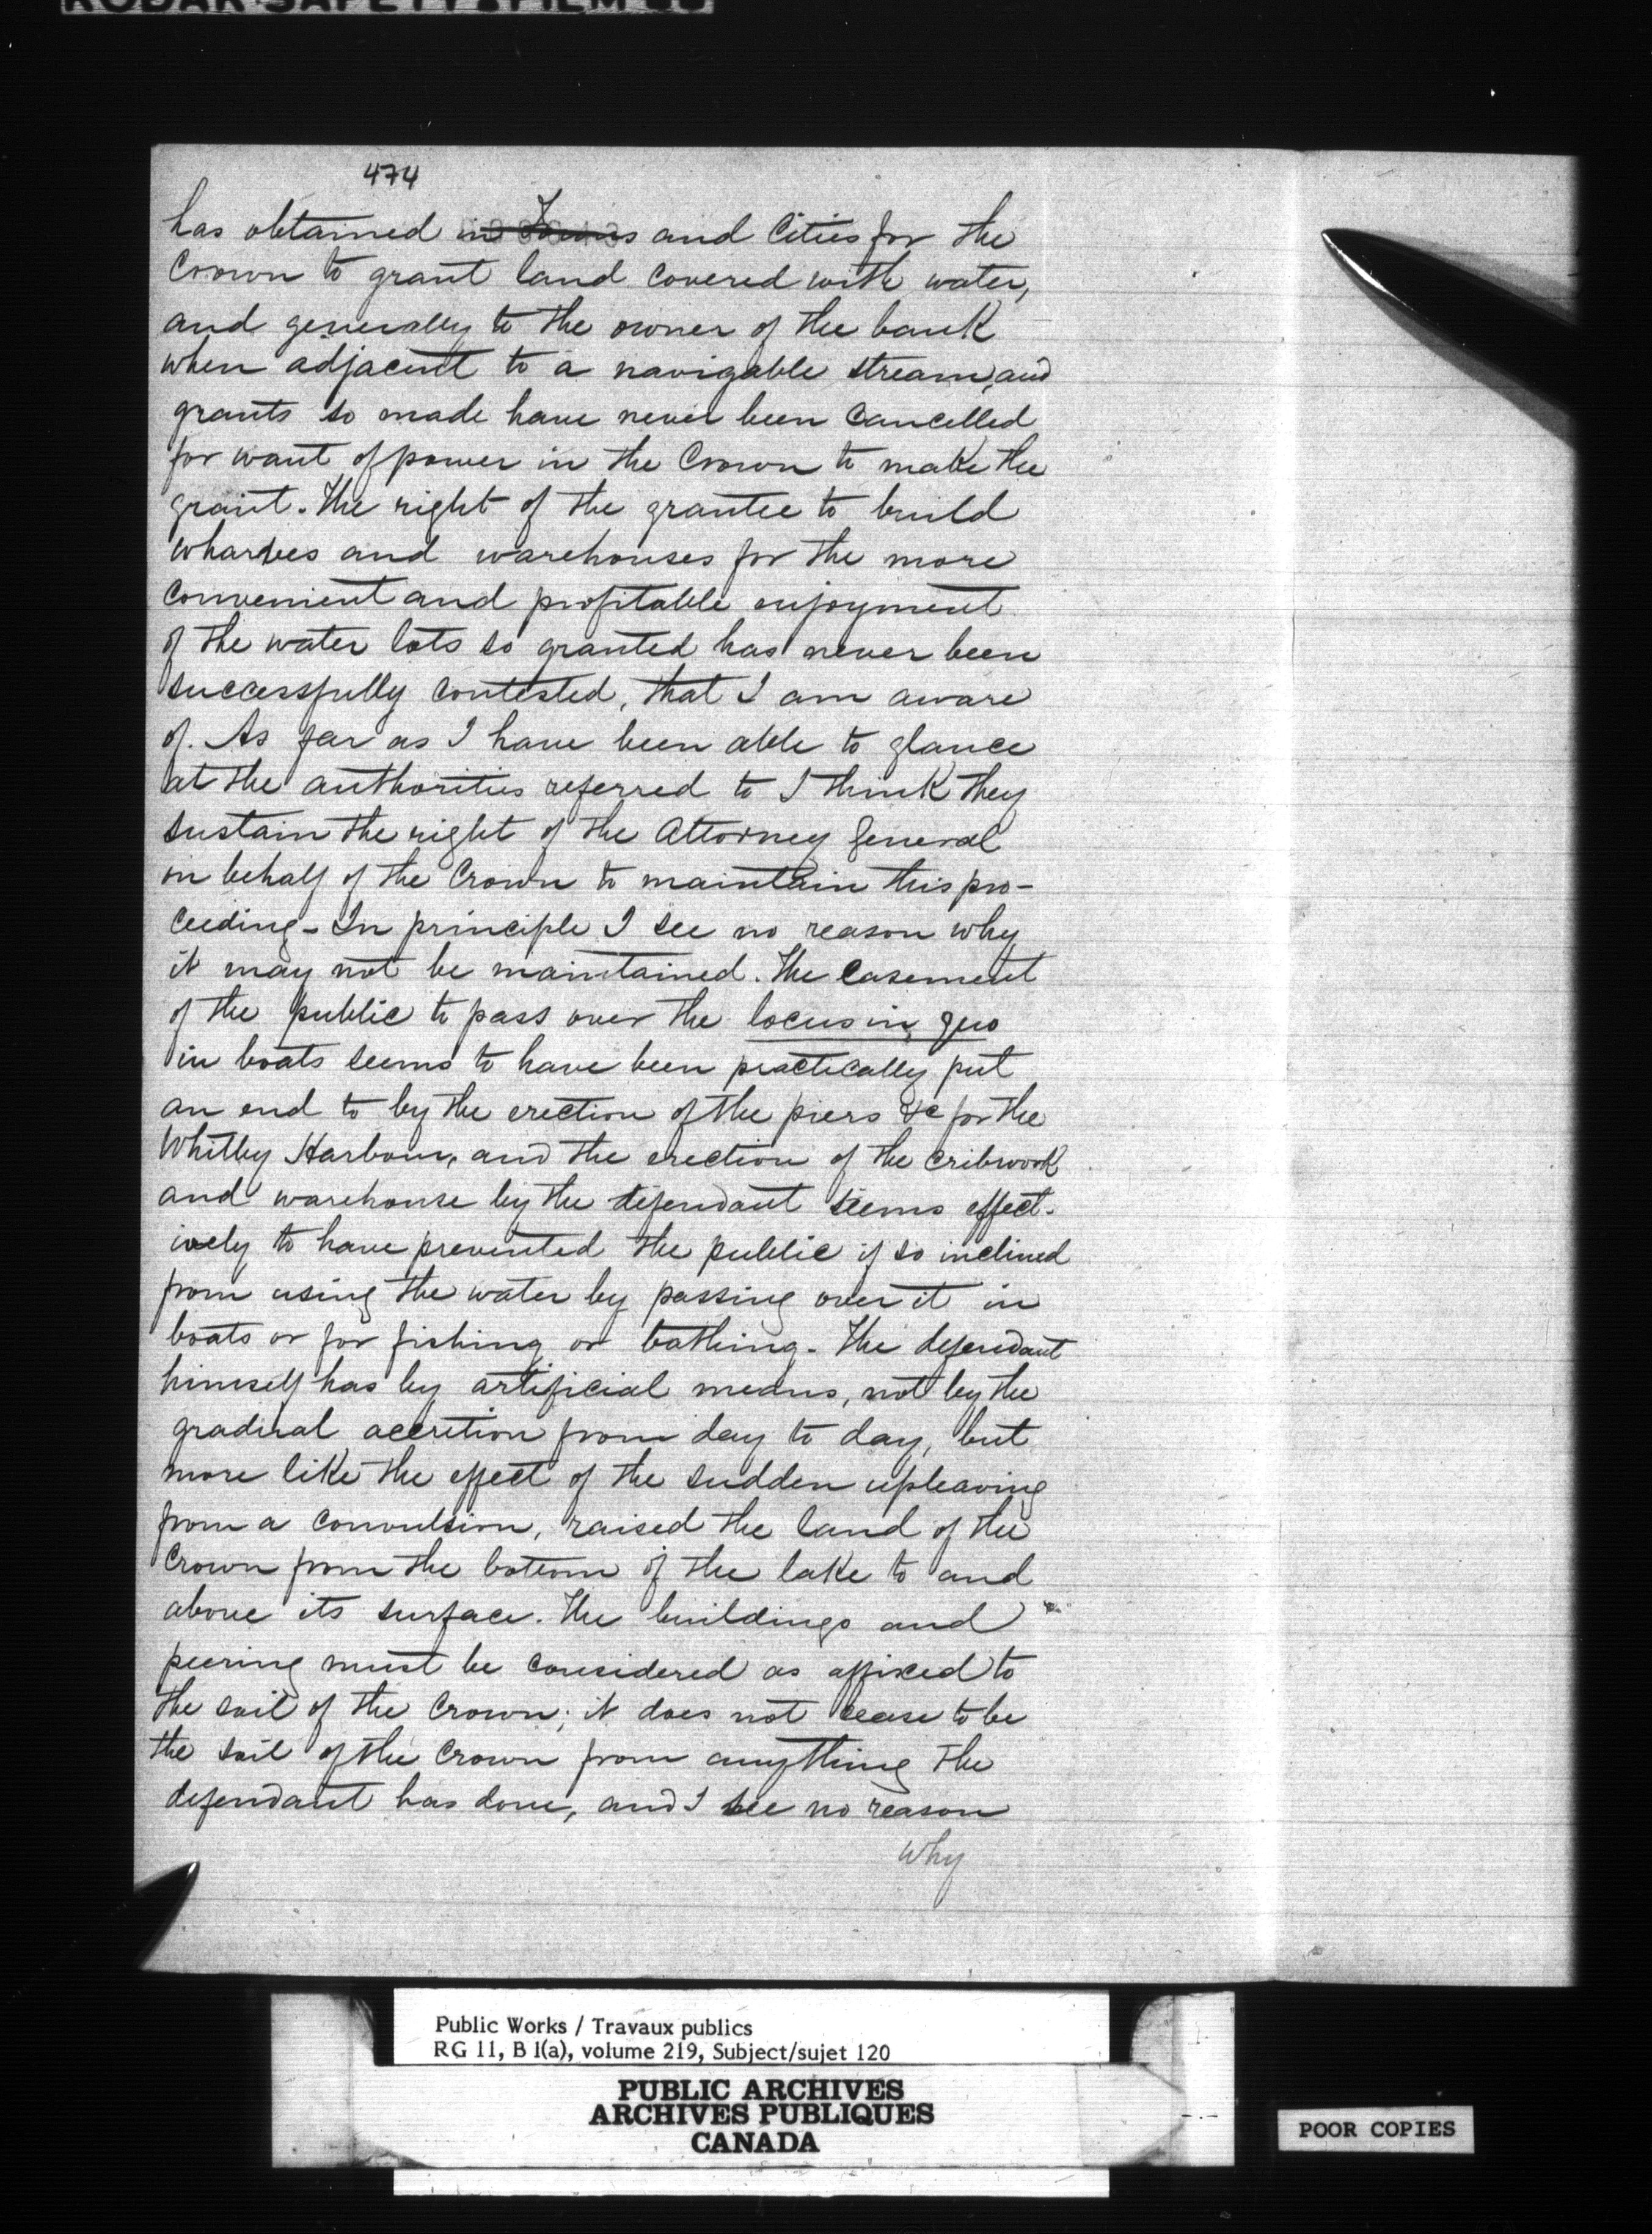 KODAK SAFETY FILM
474
has obtained in Towns and Cities for the
Crown to grant land covered with water,
and generally to the owner of the bank
when adjacent to a navigable stream, and
grants so made have never been cancelled
for want of power in the Crown to make the
grant. The right of the grantee to build
wharves and warehouses for the more
convenient and profitable enjoyment
of the water lots so granted has never been
successfully contested, that I am aware
of. As far as I have been able to glance
at the authorities referred to I think they
sustain the right of the Attorney General
on behalf of the Crown to maintain this pro-
ceeding - In principle I see no reason why
it may not be maintained. The easement
of the public to pass over the locus in quo
in boats seems to have been practically put
an end to by the erection of the piers &c for the
Whitby Harbour, and the erection of the cribwork
and warehouse by the defendant seems effect-
ively to have prevented the public if so inclined
from using the water by passing over it in
boats or for fishing or bathing - The defendant
himself has by artificial means, not by the
gradual accretion from day to day, but
more like the effect of the sudden upheaving
from a convulsion, raised the land of the
Crown from the bottom of the lake to and
above its surface. The buildings and
peering must be considered as affixed to
the soil of the Crown; it does not cease to be
the soil of the Crown from anything the
defendant has done, and I see no reason
Why
Public Works / Travaux publics
RG 11, B 1(a), volume 219, Subject/sujet 120
PUBLIC ARCHIVES
ARCHIVES PUBLIQUES
CANADA
POOR COPIES